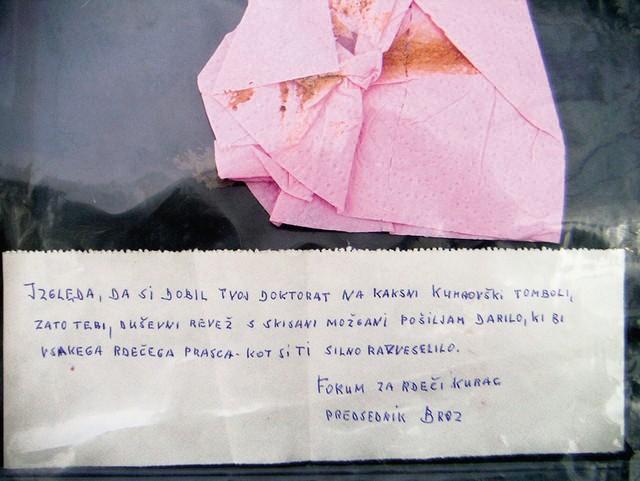 IZGLEDA, DA SI DOBIL TVOJ DOKTORAT NA KAKSNI KUMROVŠKI TOMBOLI,
ZATO TEBI, DUŠEVNI REVEŽ S SKISANI MOŽGANI POŠILJAM DARILO, KI BI
VSAKEGA RDEČEGA PRASCA - KOT SI TI SILNO RAZVESELILO.
FORUM ZA RDEČI KURAC
PREDSEDNIK BROZ